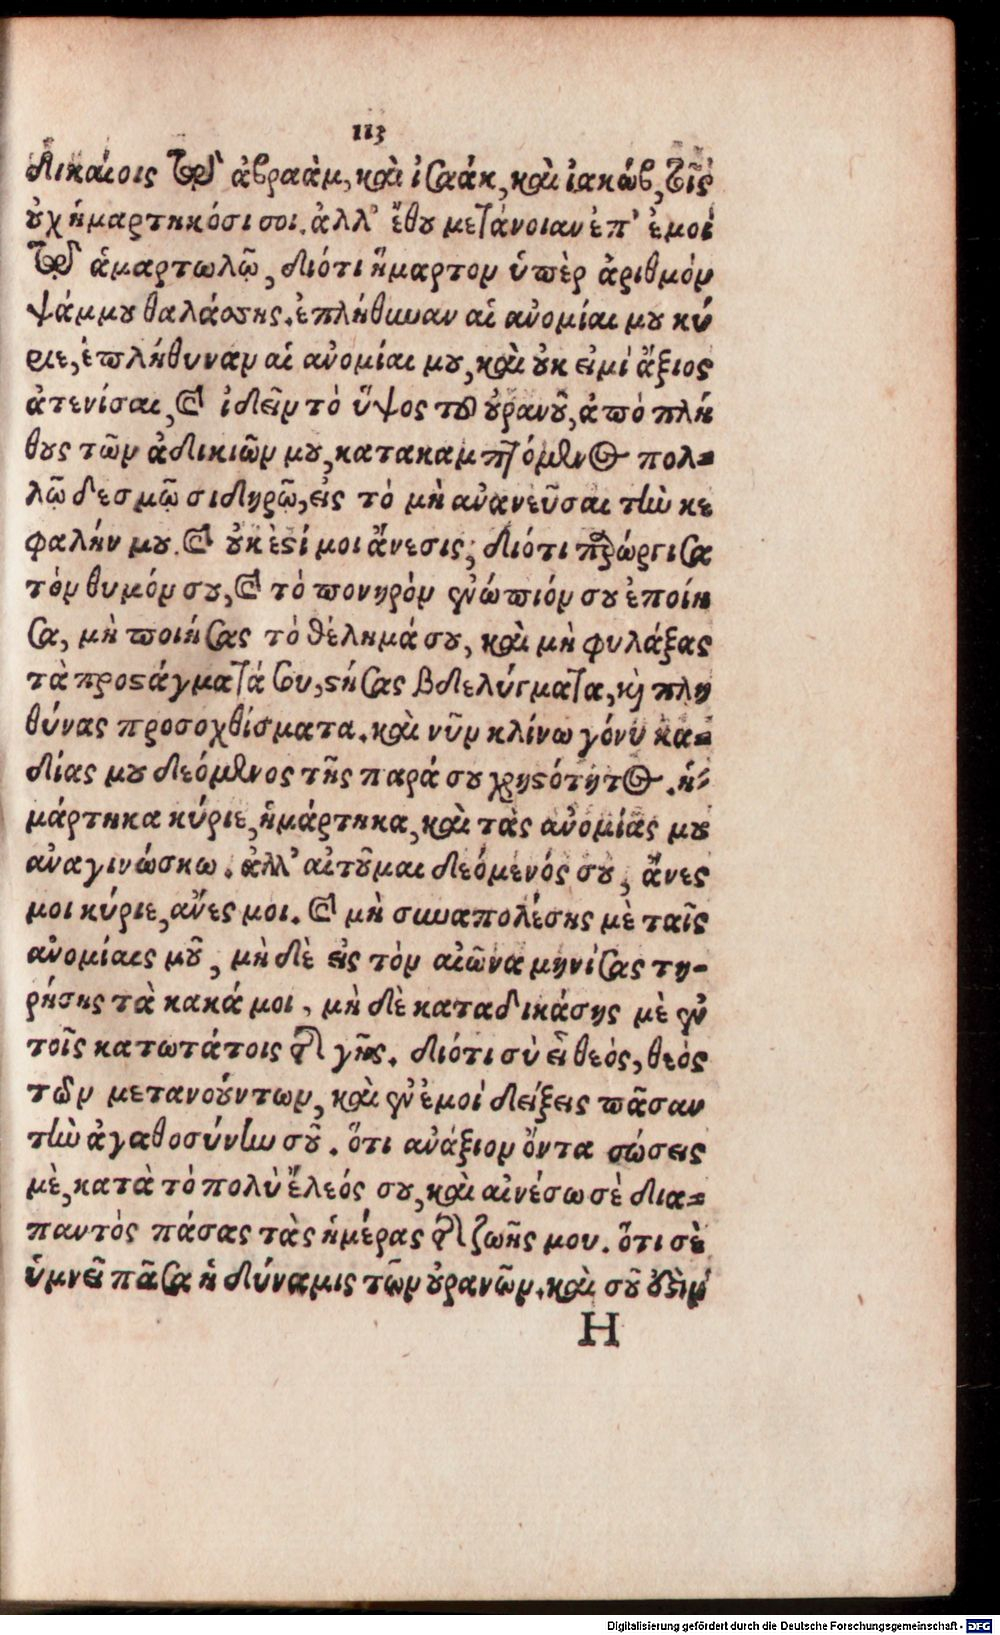 113
δικαίοις τῷ ἀβραὰμ, καὶ ἰσαάκ, καὶ ἰακώβ, τοῖς
οὐχ ἡμαρτηκόσι σοι. ἀλλ' ἔθου μετάνοιαν ἐπ' ἐμοί
τῷ ἁμαρτωλῷ, διότι ἥμαρτον ὑπὲρ ἀριθμὸν
ψάμμου θαλάσσης. ἐπλήθυναν αἱ ἀνομίαι μου κύ
ριε, ἐπλήθυναν αἱ ἀνομίαι μου, καὶ οὐκ εἰμί ἄξιος
ἀτενίσαι, καὶ ἰδεῖν τὸ ὕψος τοῦ οὐρανοῦ, ἀπὸ πλή
θους τῶν ἀδικιῶν μου, κατακαμπτόμενος πολ=
λῷ δεσμῷ σιδηρῷ, εἰς τὸ μὴ ἀνανεῦσαι τὴν κε
φαλήν μου. καὶ οὐκ ἐστί μοι ἄνεσις, διότι παρώργισα
τὸν θυμόν σου, καὶ τὸ πονηρὸν ἐνώπιόν σου ἐποίη
σα, μὴ ποιήσας τὸ θέλημά σου, καὶ μὴ φυλάξας
τὰ προστάγματά σου, στήσας βδελύγματα, καὶ πλη
θύνας προσοχθίσματα. καὶ νῦν κλίνω γόνυ κα=
δίας μου δεόμενος τῆς παρά σου χρηστότητος. ἡ-
μάρτηκα κύριε, ἡμάρτηκα, καὶ τὰς ἀνομίας μου
ἀναγινώσκω. ἀλλ' αἰτοῦμαι δεόμενός σου, ἄνες
μοι κύριε, ἄνες μοι. καὶ μὴ συναπολέσης μὲ ταῖς
ἀνομίαις μοῦ, μὴ δὲ εἰς τὸν αἰῶνα μηνίσας τη-
ρήσης τὰ κακά μοι, μὴ δὲ καταδικάσης μὲ ἐν
τοῖς κατωτάτοις τῆς γῆς. διότι σὺ εἶ θεός, θεός
τῶν μετανοούντων, καὶ ἐν ἐμοί δείξεις πᾶσαν
τὴν ἀγαθοσύνην σοῦ. ὅτι ἀνάξιον ὄντα σώσεις
μὲ, κατὰ τὸ πολὺ ἔλεός σου, καὶ αἰνέσω σὲ δια=
παντὸς πάσας τὰς ἡμέρας τῆς ζωῆς μου. ὅτι σὲ
ὑμνεῖ πᾶσα ἡ δύναμις τῶν οὐρανῶν. καὶ σοῦ ἐστὶν
H
Digitalisierung gefördert durch die Deutsche Forschungsgemeinschaft - DFG